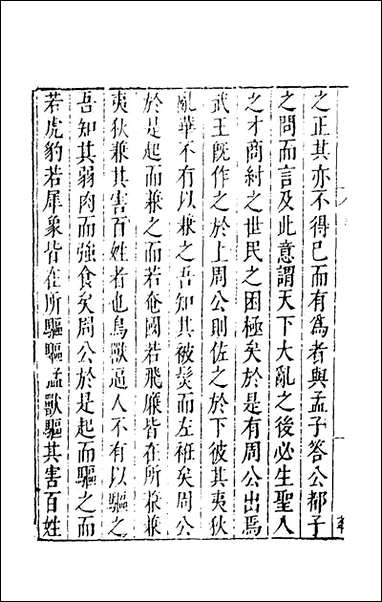 之正其亦不得已而有為者與孟子答公都子
之問而言及此意謂天下大亂之後必生聖人
之才商紂之世民之困極矣於是有周公出焉
武王旣作之於上周公則佐之於下彼其夷狄
亂華不有以兼之吾知其被髮而左袵矣周公
於是起而兼之而若奄國若飛廉皆在所兼兼
夷狄兼其害百姓者也鳥獸逼人不有以驅之
吾知其弱肉而強食矣周公於是起而驅之而
若虎豹若犀象皆在所驅驅孟獸驅其害百姓